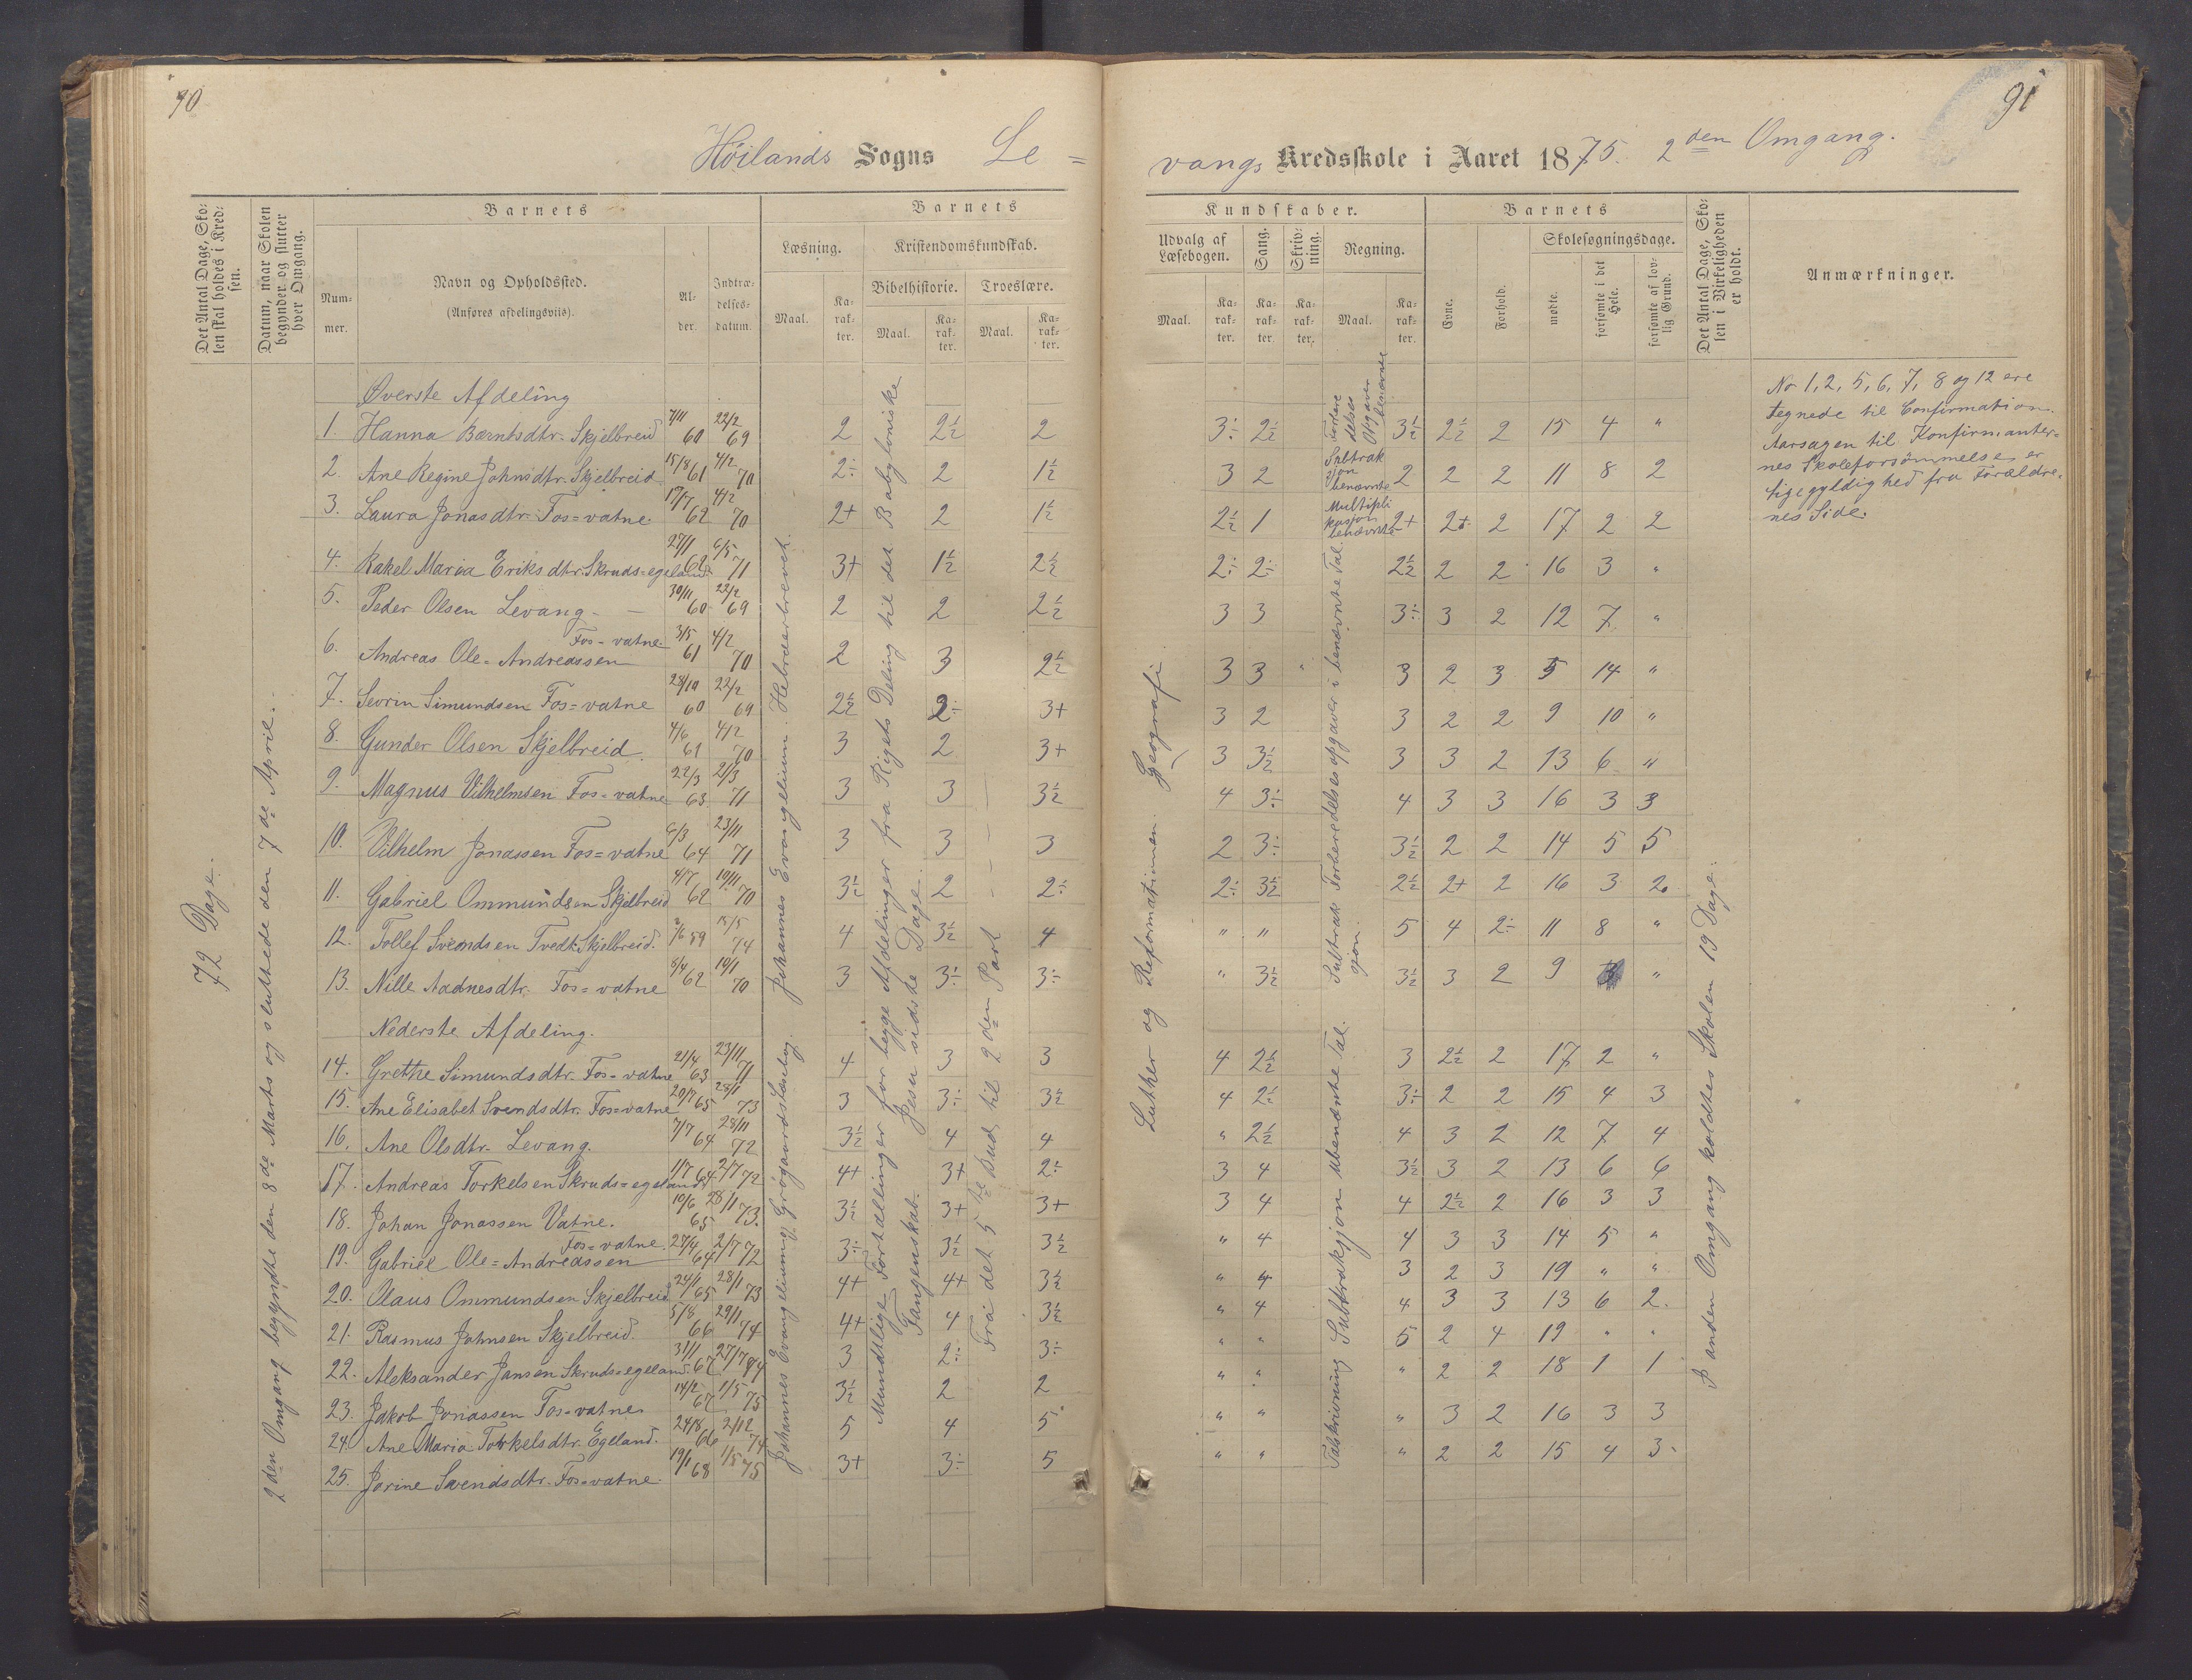 90
91
Höilands Sogns Le =
vangs Kredsskole i Aaret 1875. 2den Omgang.
Det Antal Dage, Sko-
len skal holdes i Kred-
sen.
Datum, naar Skolen
begynder og slutter
hver Omgang.
Barnets
Num-
mer.
Navn og Opholdssted.
(Anføres afdelingsviis).
Al-
der.
Indtræ-
delses-
datum.
Barnets
Læsning.
Kristendomskundskab.
Bibelhistorie. Troeslære.
Maal.
Ka-
rak-
ter.
Maal.
Ka-
rak-
ter.
Maal.
Ka-
rak-
ter.
Kundskaber.
Udvalg af
Læsebogen.
Sang.
Skriv-
ning.
Regning.
Maal.
Ka-
rak-
ter.
Ka-
rak-
ter.
Ka-
rak-
ter.
Maal.
Ka-
rak-
ter.
Barnets
Evne.
Forhold.
Skolesøgningsdage.
mødte.
forsømte i det
Hele.
forsømte af lov-
lig Grund.
Det Antal Dage, Sko-
len i Virkeligheden
er holdt.
Anmærkninger.
72 Dage.
2den Omgang begyndte den 8de Marts og sluttede den 7de April.
Johannes Evangelium, Grögaards Læsebog. Johannes Evangelium. Hebræerbrevet.
Mundtlige Fortællinger for begge Afdelinger fra Rigets Deling til det Babyloniske
Fangenskab. Jesu sidste Dage.
Fra det 5te Bud til 2den Part
Luther og Reformationen. Geografi.
Talskrivning Subtrakjon ubenævnte Tal. Subtrak Forberedelsesopgaver i benævnte Tal.
sjon.
Forbere
delses
Opgaver
benævnte
Subtrak
sjon
benævnte
Multipli
kasjon
benævnte
På anden Omgang holdtes Skolen 19 Dage.
No 1, 2, 5, 6, 7, 8 og 12 ere
tegnede til Confirmation.
Aarsagen til Konfirmanter-
nes Skoleforsömmelse er
Ligegyldighed fra Forældre-
nes Side.
Øverste Afdeling
1. Hanna Berntsdtr. Skjelbreid 7/11 60 22/2 69 2 2½ 2 3÷ 2½ 3½ 2½ 2 15 4 "
2. Ane Regine Johnsdtr. Skjelbreid 15/8 61 4/2 70 2÷ 2 1½ 3 2 2 2 2 11 8 2
3. Laura Jonasdtr. Fos=vatne. 17/7 62 4/2 70 2+ 2 1½ 2½ 1 2+ 2+ 2 17 2 2
4. Rakel Maria Eriksdtr. Skruds=egeland 27/1 62 6/5 71 3+ 1½ 2½ 2÷ 2÷ 2½ 2 2 16 3 "
5. Peder Olsen Levang 30/11 60 22/2 69 2 2 2½ 3 3 3÷ 3 2 12 7 "
6. Andreas Ole=Andreassen Fos=vatne. 3/5 61 4/2 70 2 3 2½ 3 3 " 3 2 3 5 14 "
7. Sevrin Simundsen Fos=vatne 28/10 60 22/2 69 2½ 2÷ 3+ 3 2 3 2 2 9 10 "
8. Gunder Olsen Skjelbreid. 4/6 61 4/2 70 3 2 3+ 3 3½ 3 3 2 13 6 "
9. Magnus Vilhelmsen Fos=vatne 22/3 63 21/3 71 3 3 3½ 4 3÷ 4 3 3 16 3 3
10. Vilhelm Jonassen Fos=vatne 6/3 64 23/11 71 3 3 3 2 3÷ 3½ 2 2 14 5 5
11. Gabriel Ommundsen Skjelbreid 4/7 62 10/11 70 3½ 2 2÷ 2÷ 3½ 2½ 2+ 2 16 3 2
12. Tollef Svendsen Tvedt. Skjelbreid. 59 15/5 74 4 3½ 4 " " 5 4 2÷ 11 8 "
13. Nille Aadnesdtr. Fos=vatne 8/4 62 10/1 70 3 3÷ 3÷ " 3½ 3½ 3 2 9 "
Nederste Afdeling.
14. Grethe Simundsdtr. Fos=vatne 21/4 63 23/11 71 4 3 3 4 2½ 3 2½ 2 17 2 "
15. Ane Elisabet Svendsdtr. Fos=vatne 20/7 65 28/1 73 3 3÷ 3½ 4 2½ 3÷ 2 2 15 4 3
16. Ane Olsdtr. Levang. 7/7 64 28/11 72 3½ 4 4 " 2½ 4 3 2 12 7 4
17. Andreas Torkelsen Skruds=egeland 1/7 64 2/7 72 4+ 3+ 2÷ 3 4 3½ 3 2 13 6 6
18. Johan Jonassen Vatne. 10/6 65 28/1 73. 3½ 3+ 3+ 3 4 4 2½ 2 16 3 3
19. Gabriel Ole=Andreassen Fos=vatne. 27/4 64 2/7 72 3÷ 3½ 3½ " 4 4 3 3 14 5 "
20. Olaus Ommundsen Skjelbreid 24/1 65 28/1 73 4+ 4+ 3½ " 4 3 2 3 19 " "
21. Rasmus Johnsen Skjelbreid. 5/8 66 29/1 74 4+ 4 3½ " 4 4 3 3 13 6 2.
22. Aleksander Jansen Skruds=egeland. 31/1 67 27/7 74 3 2÷ 3÷ " " 5 2 4 19 " "
23. Jakob Jonassen Fos=vatne 14/2 67 1/5 75 3½ 2 2 " " " 2 2 18 1 1
24. Ane Maria Torkelsdtr. Egeland. 24/8 66 2/12 74 5 4 5 " " " 3 2 16 3 3
25. Jorine Svendsdtr. Fos=vatne. 19/1 68 1/5 75 3+ 3÷ 5 " " " 2 2 15 4 3